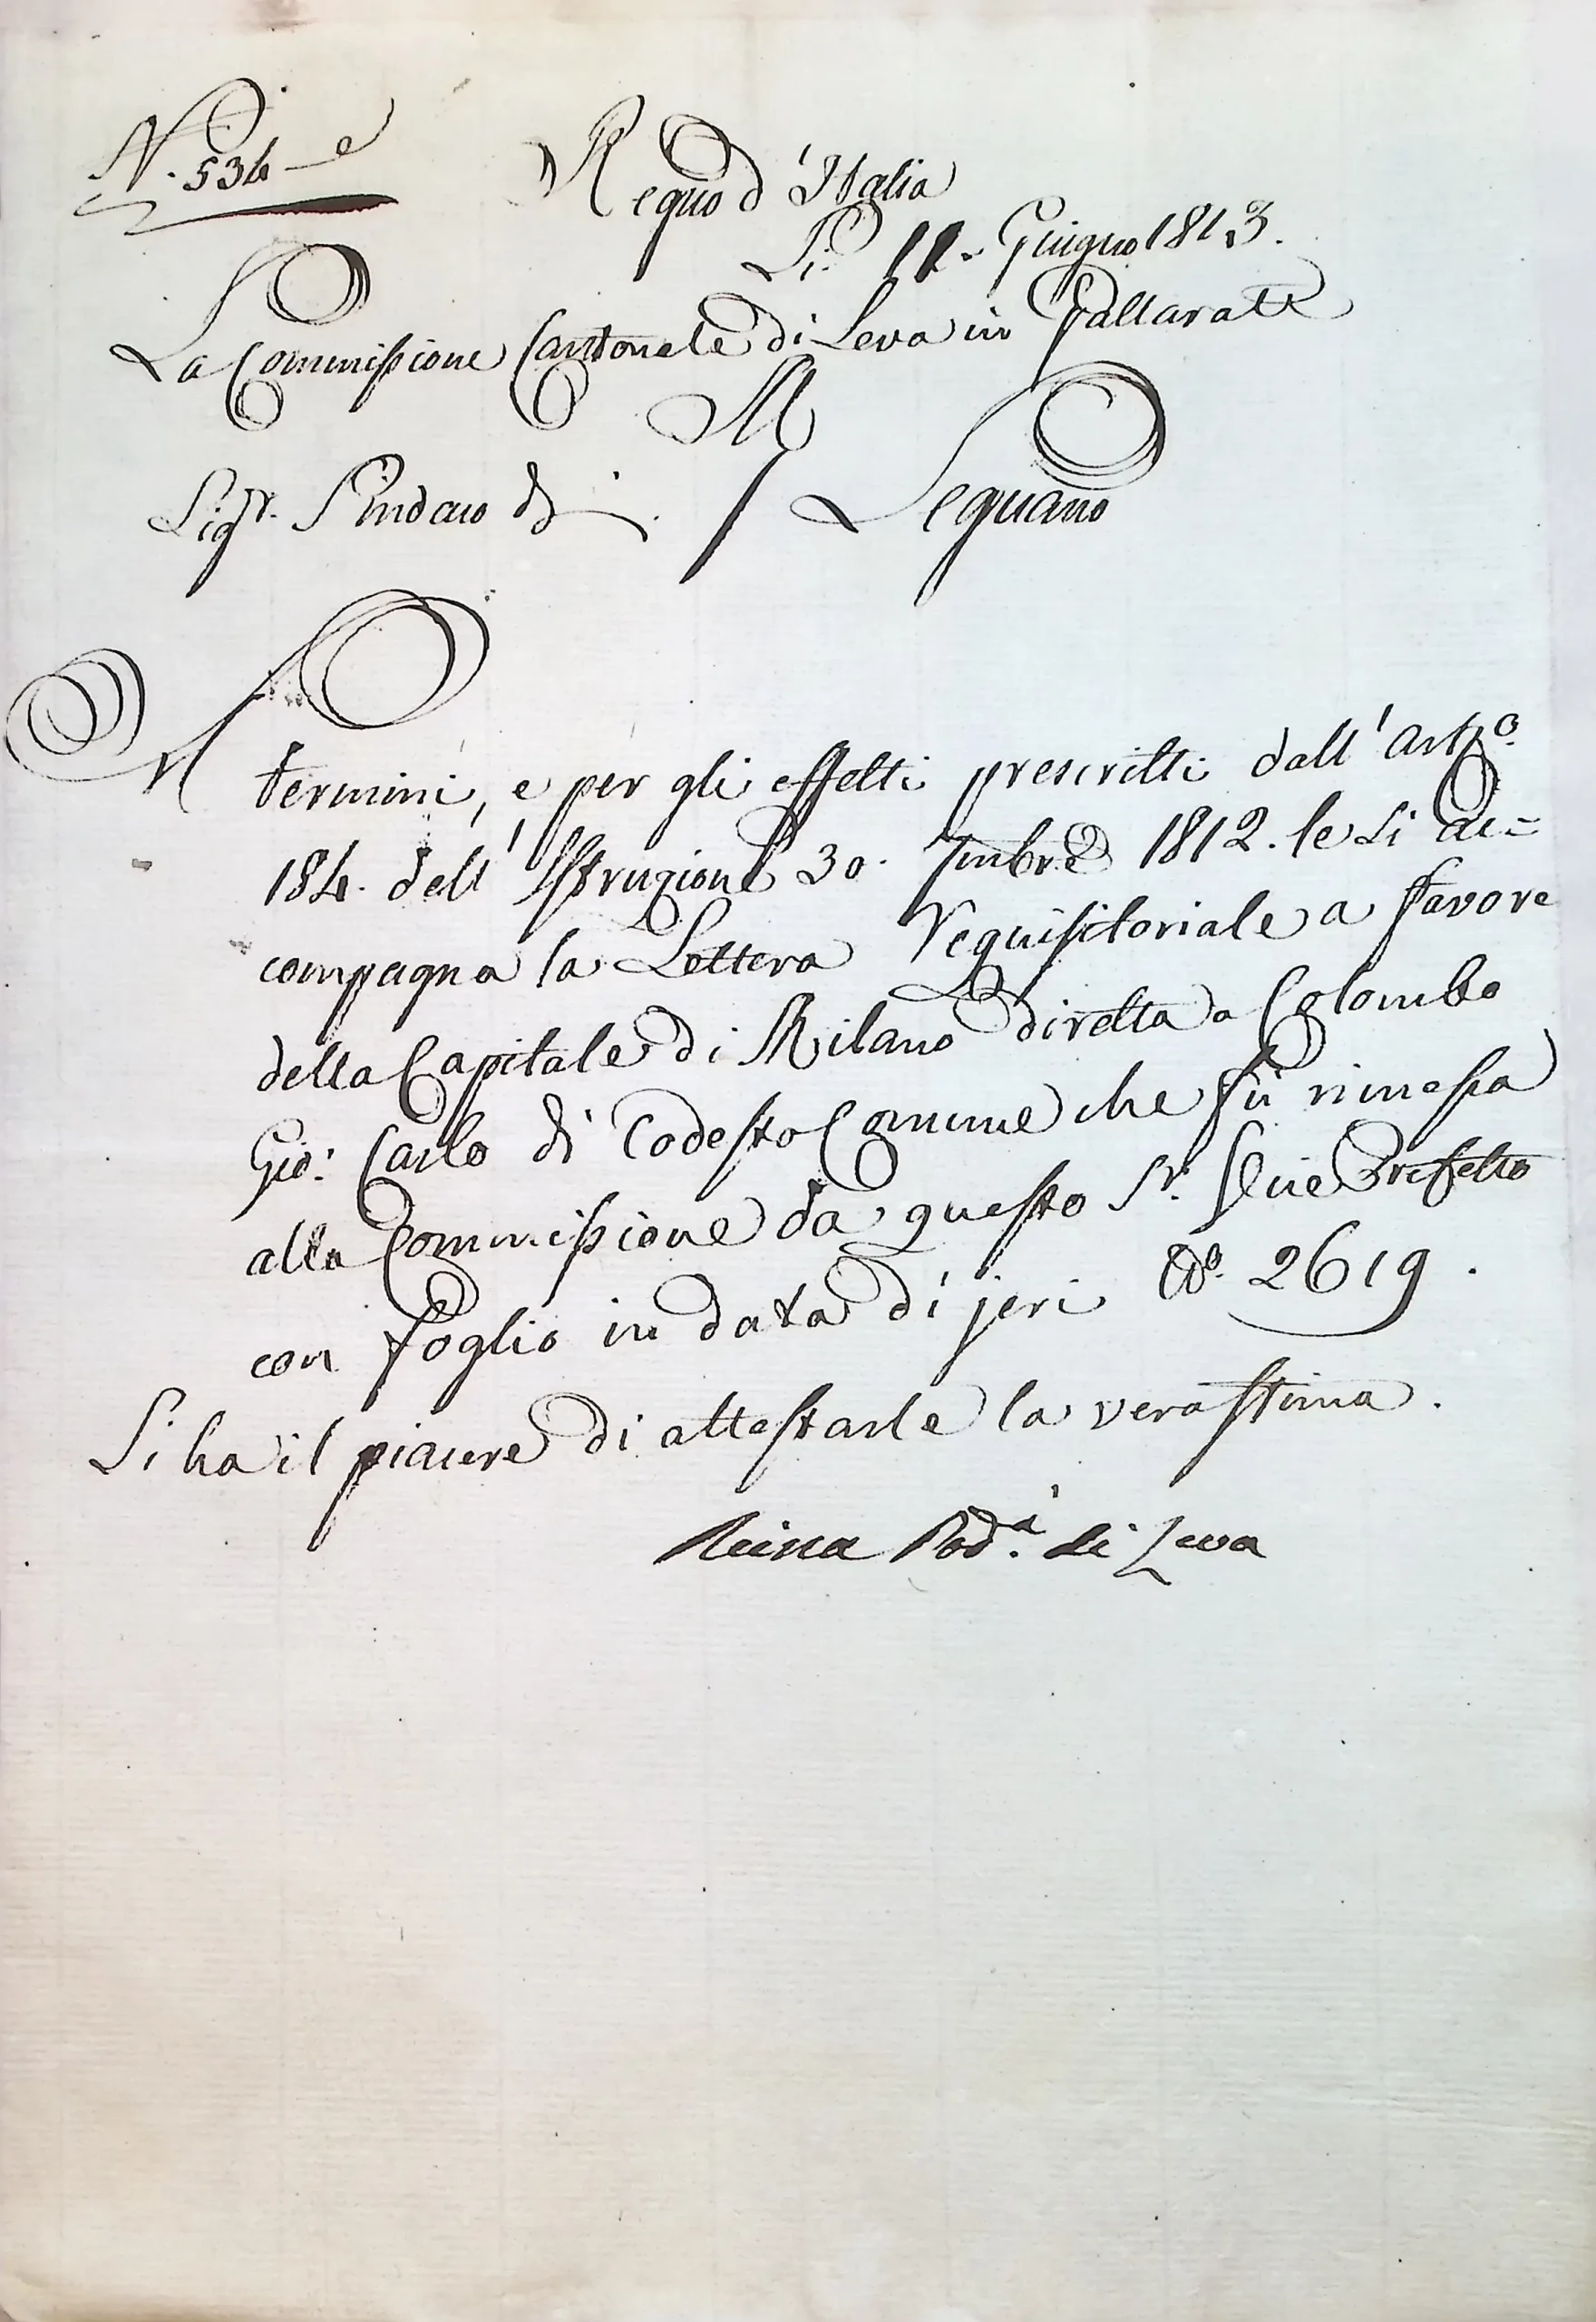 N. 534
Regno d'Italia
Li 11. Giugno 1813.
La Commissione Cantonale di Leva in Gallarate
Al
Sigr. Sindaco di Legnano
Ai
termini, e per gli effetti prescritti dall'Artº.
184. dell'Istruzione 30. 7mbre 1812. le si ac=
compagna la Lettera Requisitoriale a favore
della Capitale di Milano diretta a Colombo
Gio: Carlo di Codesto Comune che fù rimessa
alla Commissione da questo Sr. Vice Prefetto
con foglio in data di jeri Nº. 2619.
Si ha il piacere di attestarle la vera stima.
Reina Pod.à di Leva